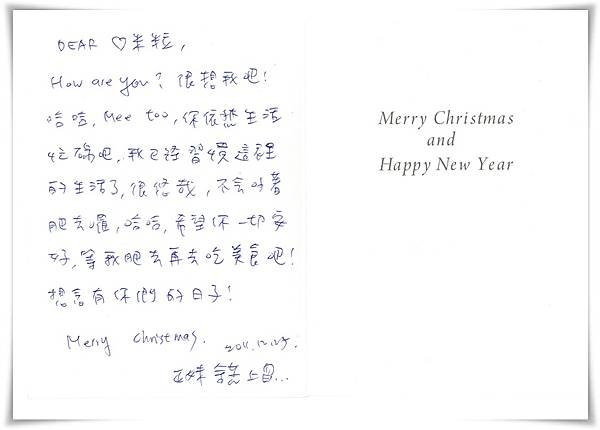 DEAR ♡米粒,
How are you? 很想我吧!
哈哈, Mee too, 你依然生活
忙碌吧, 我已經習慣這裡
的生活了, 很悠哉, 不会吵著
肥去喔, 哈哈, 希望你一切安
好, 等我肥去再去吃美食吧!
想念有你們的日子!
Merry Christmas. 2011.12.25.
上
Merry Christmas
and
Happy New Year